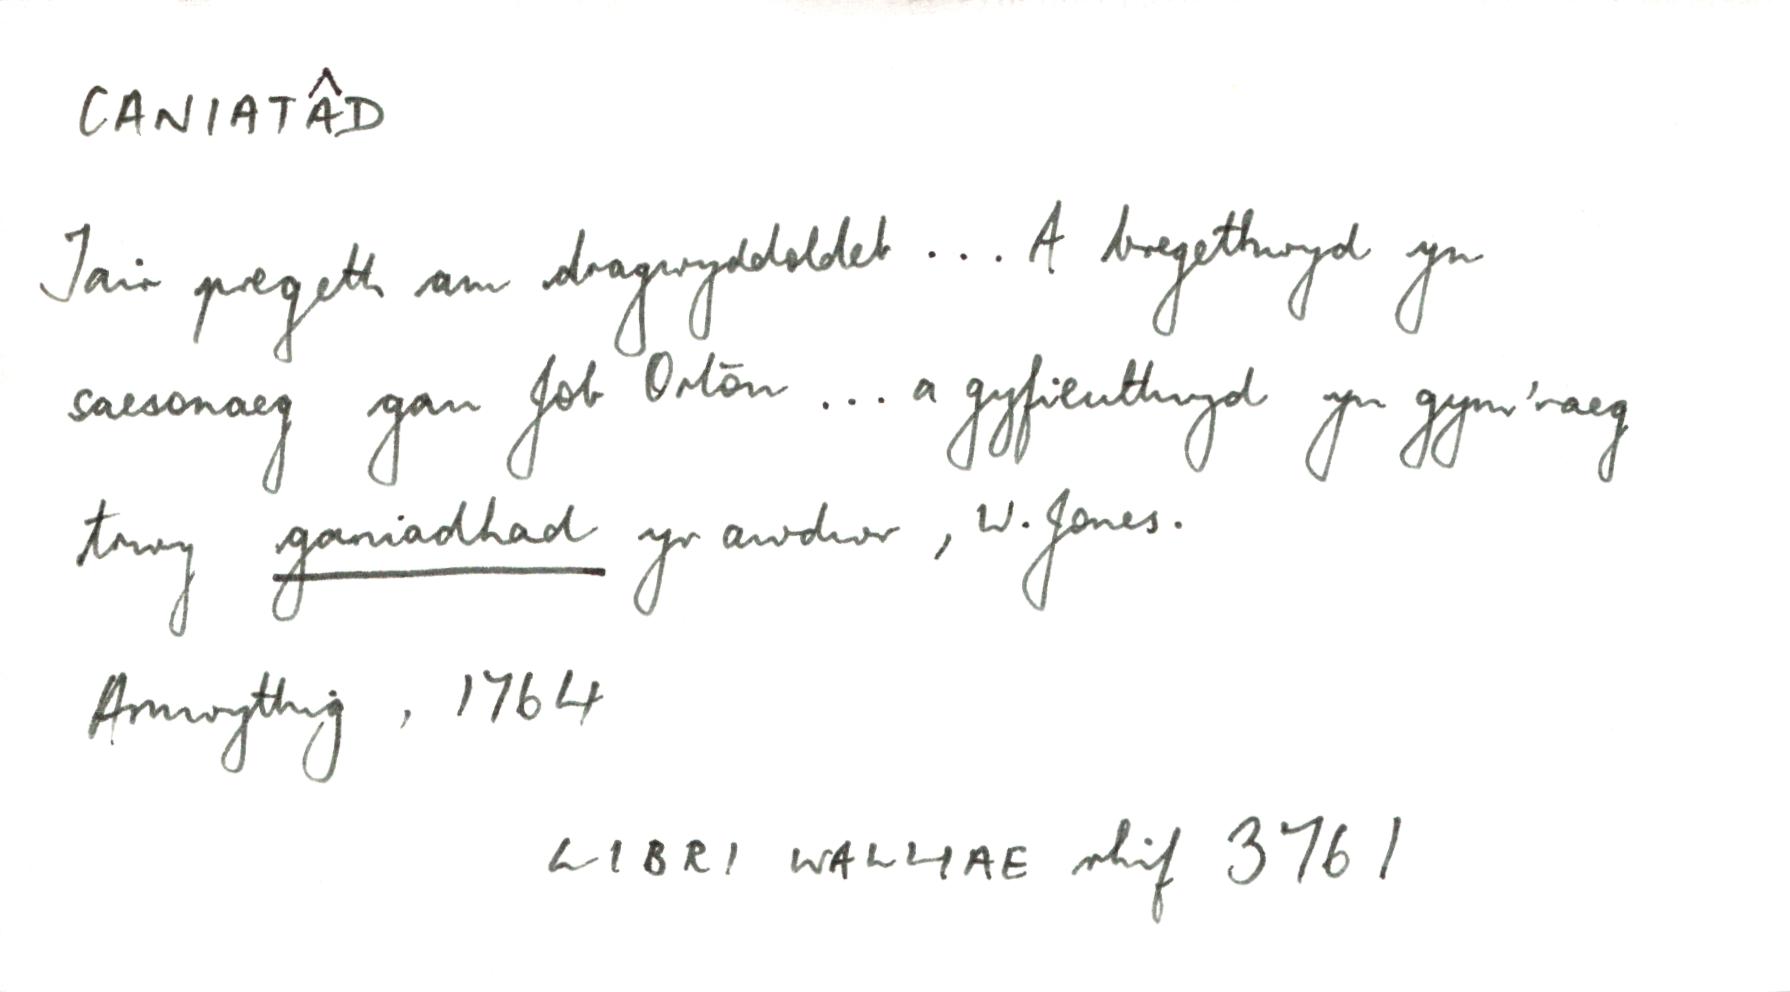 CANIATÂD
Tair pregeth am dragwyddoldeb ... A bregethwyd yn
saesonaeg gan Job Ortōn ... a gyfieuthwyd yn gym'raeg
trwy ganiadhad yr awdwr, W. Jones.
Amwythig, 1764
LIBRI WALLIAE rhif 3761